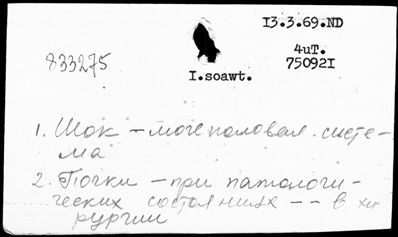 I3.3.69.ND
833275
4uT.
75092I
I.soawt.
1. Шок – мочеполовая систе-
ма
2. Почки – при патологи-
ческих состояниях – – в хи
рургии